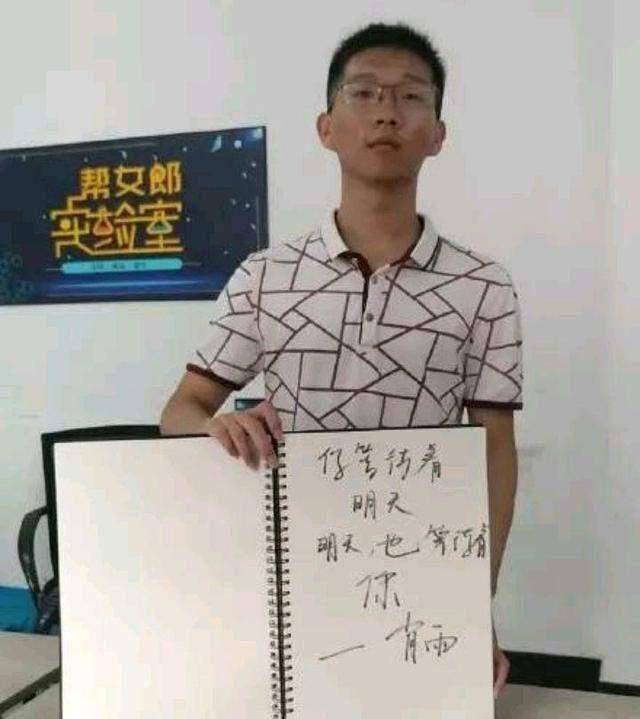 帮女郎
实验室
你等待着
明天
明天,也等待着
你
一 宵雨